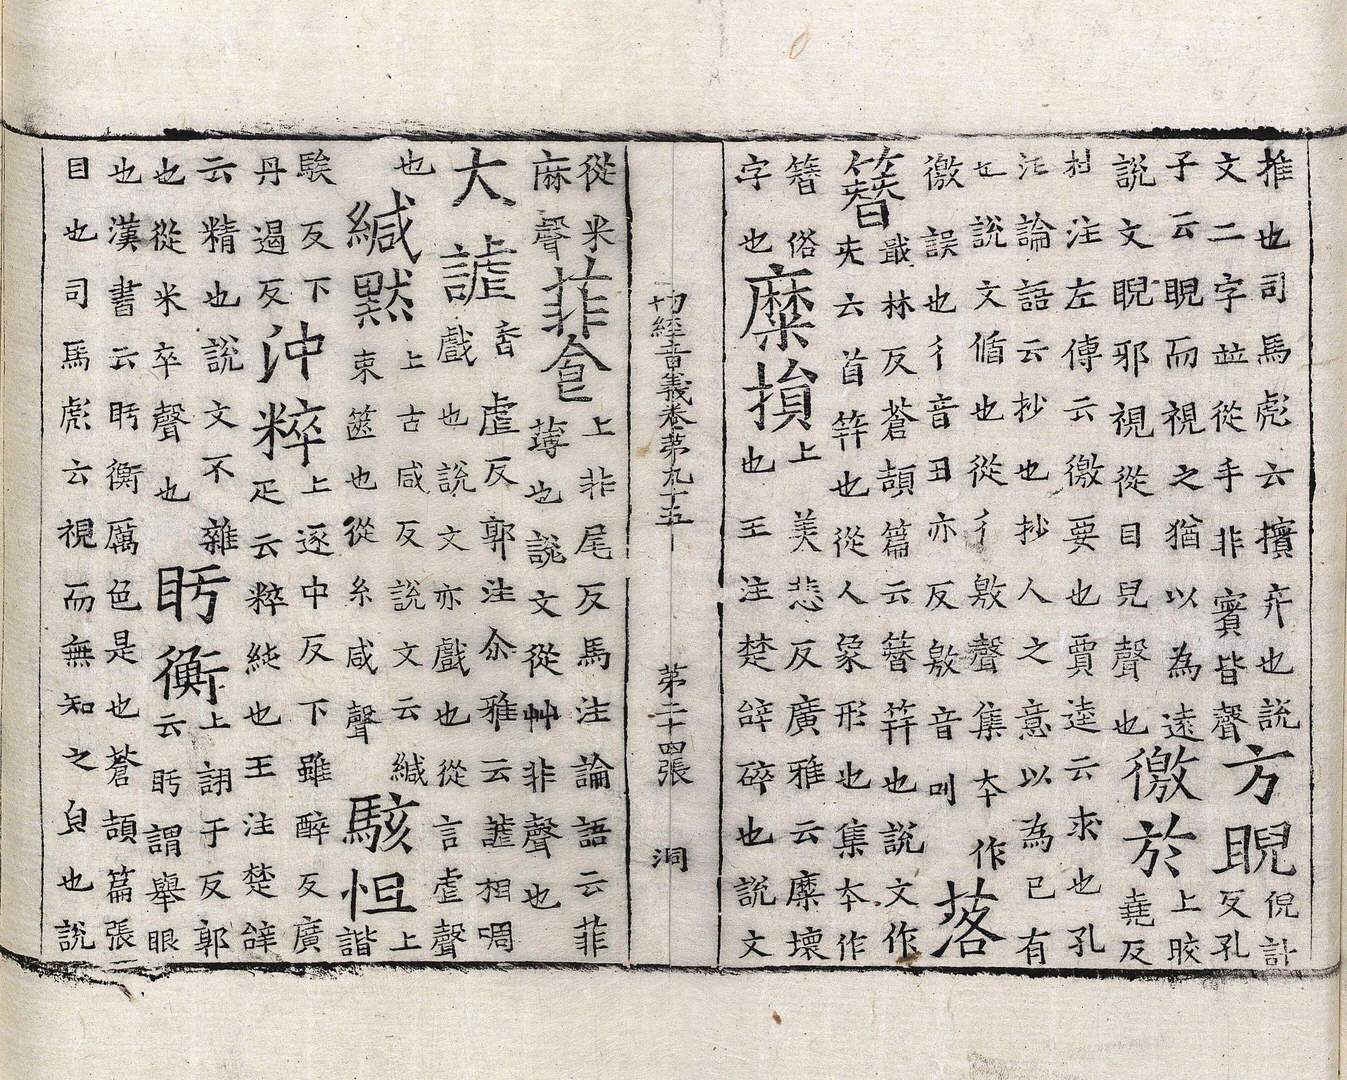 推也司馬彪云擯弃也說文二字並從手非賓皆聲方睨倪計反孔
子云睨而視之猶以為遠說文睨邪視從目兒聲也徼於上晈堯反
杜注左傳云徼要也賈逵云求也孔注論語云抄也抄人之意以為己有
也說文循也從彳敫聲集本作徼誤也彳音丑亦反敫音叫落
簪戢林反蒼頡篇云簪笄也說文作兂云首笄也從人象形也集本作
簪俗字也糜損上美悲反廣雅云糜壞也王注楚辭碎也說文
切經音義卷第九十五 第二十四張 洞
從米麻聲菲食上非尾反馬注論語云菲薄也說文從艸非聲也
大謔香虐反郭注尒雅云謔相啁戲也說文亦戲也從言虐聲
也緘默上古咸反說文云緘束篋也從糸咸聲駭怛上諧
駭反下丹遏反沖粹上逐中反下雖醉反廣疋云粹純也王注楚辭
云精也說文不雜也從米卒聲也盱衡上詡于反郭云盱謂舉眼
也漢書云盱衡厲色是也蒼頡篇張目也司馬彪云視而無知之皃也說